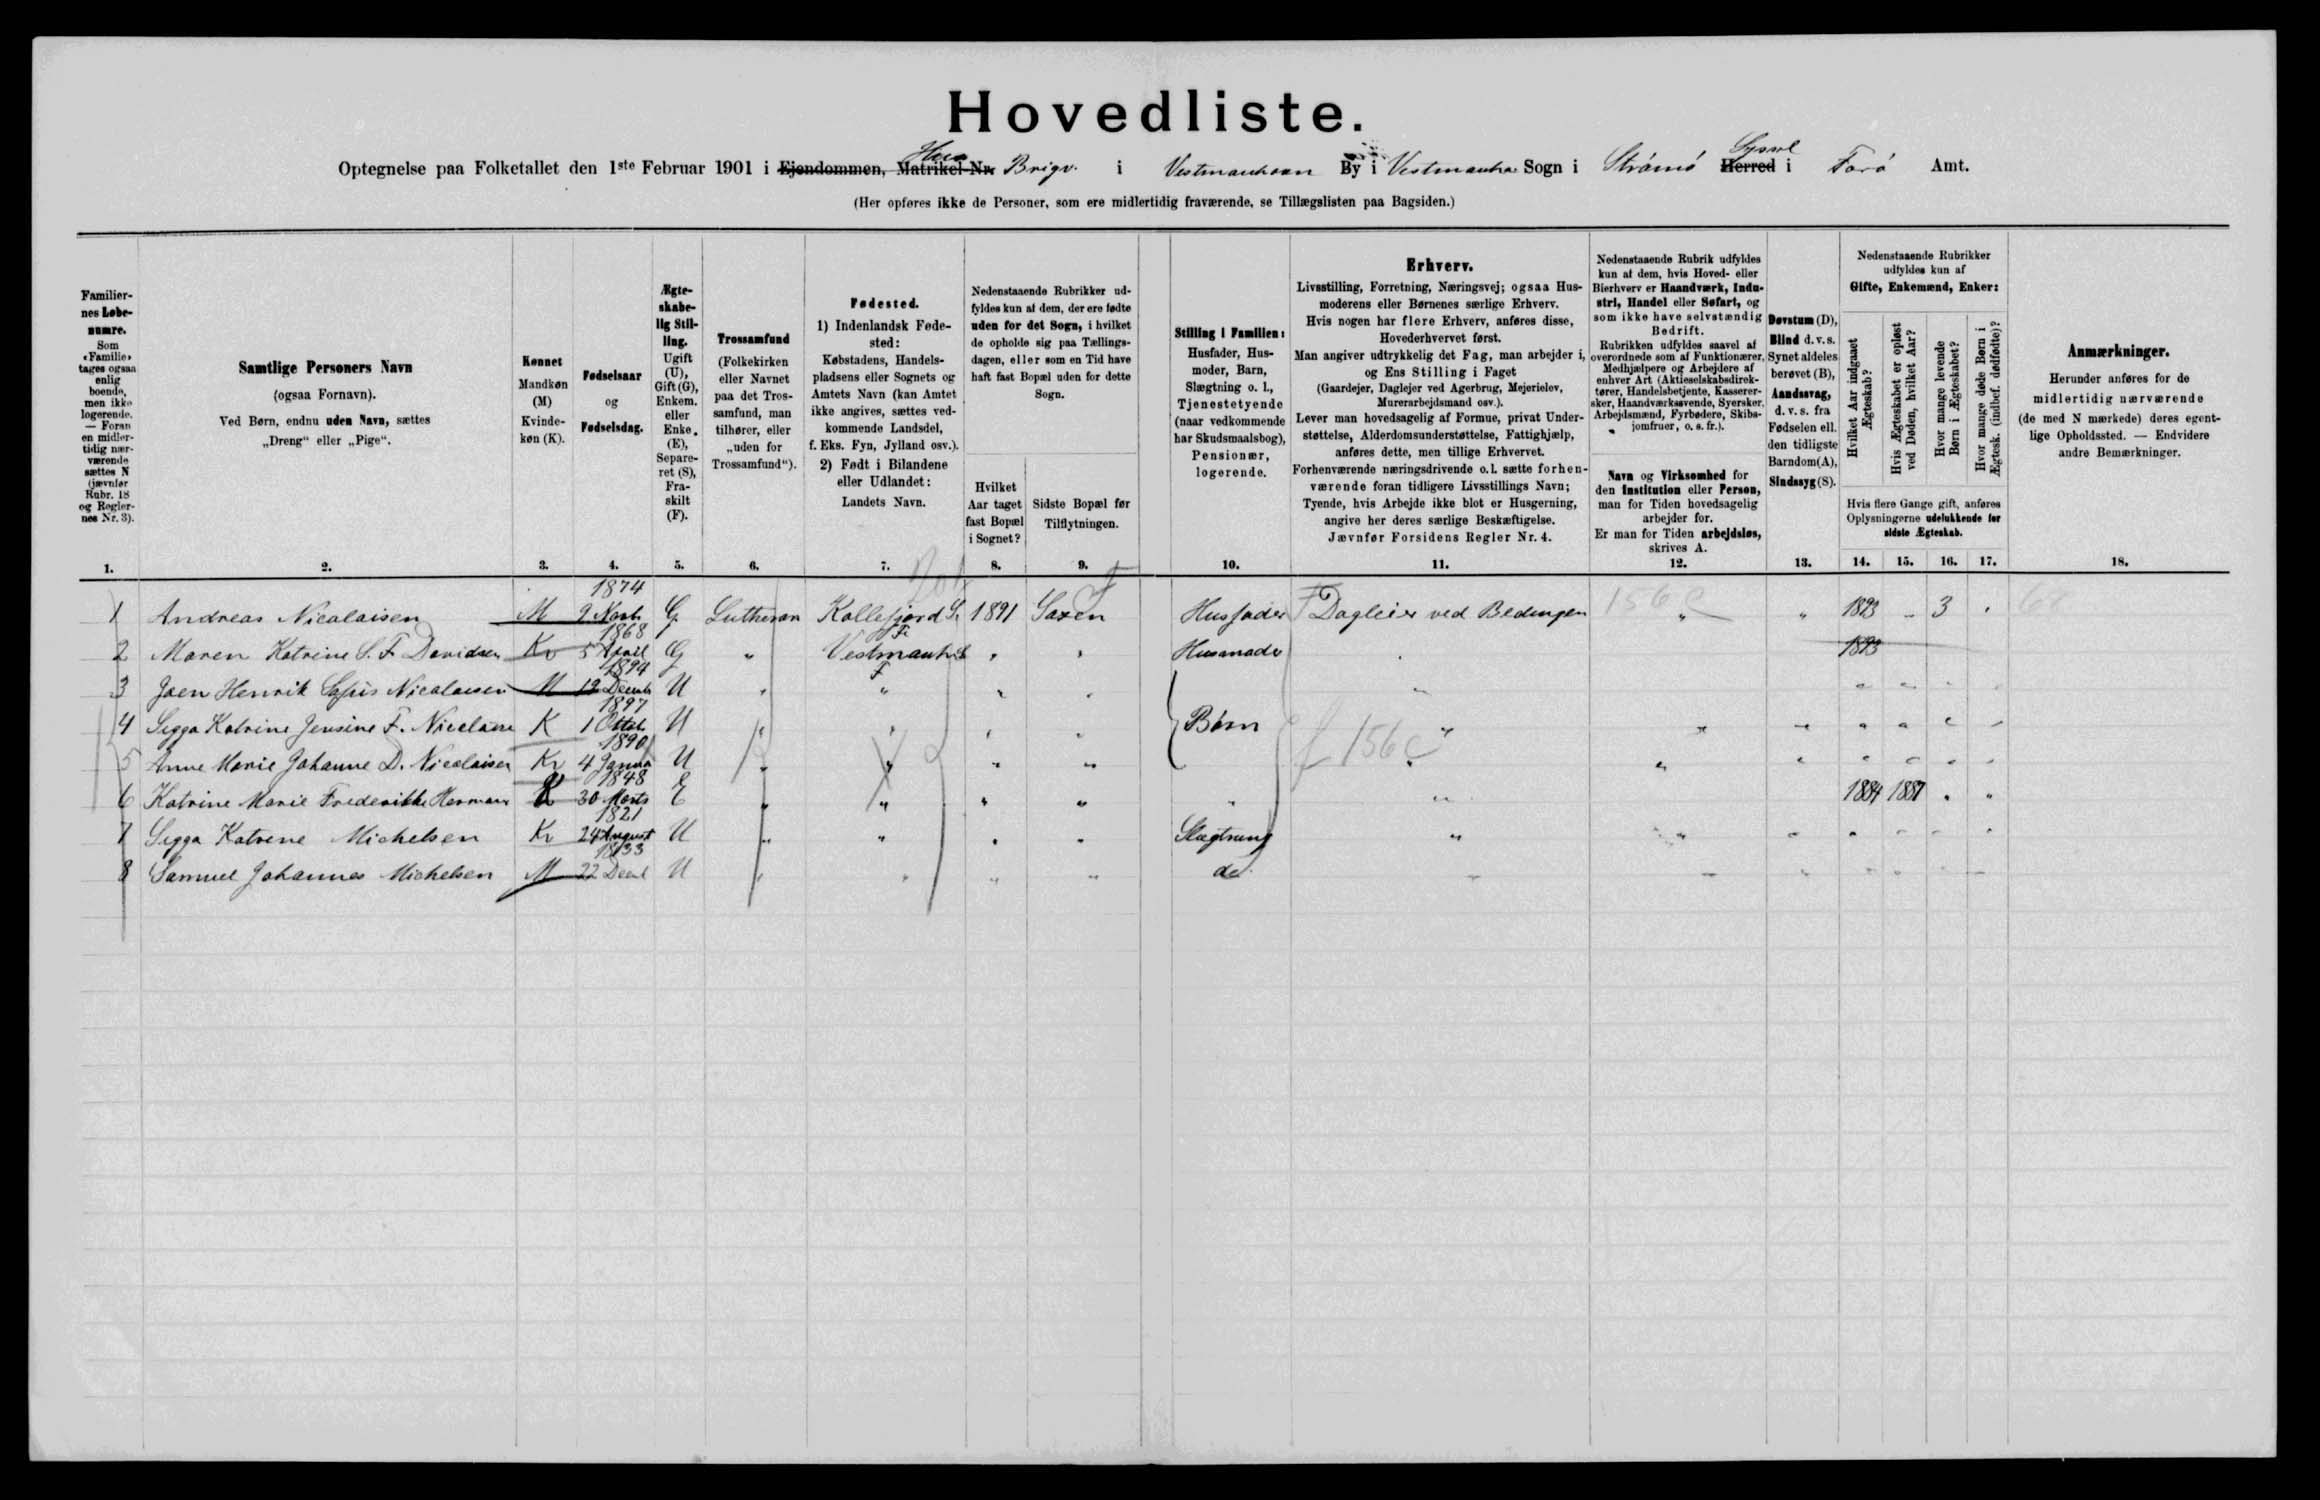 Hovedliste.
Optegnelse paa Folketallet den 1ste Februar 1901 i Ejendommen, Matrikel-Nr. Hus Brigv. i Vestmanhavn By i Vestmanha Sogn i Strömö Herred Syssel i Farö Amt.
(Her opføres ikke de Personer, som ere midlertidig fraværende, se Tillægslisten paa Bagsiden.)
Familiernes Løbenumre.
Som «Familie» tages ogsaa enlig boende, men ikke logerende. — Foran en midlertidig nærværende sættes N (jævnfør Rubr. 18 og Reglernes Nr. 3).
Samtlige Personers Navn
(ogsaa Fornavn).
Ved Børn, endnu uden Navn, sættes „Dreng“ eller „Pige“.
Kønnet
Mandkøn (M)
Kvindekøn (K).
Fødselsaar og Fødselsdag.
Ægteskabelig Stilling.
Ugift (U), Gift (G), Enkem. eller Enke (E), Separeret (S), Fraskilt (F).
Trossamfund
(Folkekirken eller Navnet paa det Trossamfund, man tilhører, eller „uden for Trossamfund“).
Fødested.
1) Indenlandsk Fødested:
Købstadens, Handelspladsens eller Sognets og Amtets Navn (kan Amtet ikke angives, sættes vedkommende Landsdel, f. Eks. Fyn, Jylland osv.).
2) Født i Bilandene eller Udlandet:
Landets Navn.
Nedenstaaende Rubrikker udfyldes kun af dem, der ere fødte uden for det Sogn, i hvilket de opholde sig paa Tællingsdagen, eller som en Tid have haft fast Bopæl uden for dette Sogn.
Hvilket Aar taget fast Bopæl i Sognet?
Sidste Bopæl før Tilflytningen.
Stilling i Familien:
Husfader, Husmoder, Barn, Slægtning o. l., Tjenestetyende (naar vedkommende har Skudsmaalsbog), Pensionær, logerende.
Erhverv.
Livsstilling, Forretning, Næringsvej; ogsaa Husmoderens eller Børnenes særlige Erhverv.
Hvis nogen har flere Erhverv, anføres disse, Hovederhvervet først.
Man angiver udtrykkelig det Fag, man arbejder i, og Ens Stilling i Faget
(Gaardejer, Daglejer ved Agerbrug, Mejerielev, Murerarbejdsmand osv.).
Lever man hovedsagelig af Formue, privat Understøttelse, Alderdomsunderstøttelse, Fattighjælp, anføres dette, men tillige Erhvervet.
Forhenværende næringsdrivende o. l. sætte forhenværende foran tidligere Livsstillings Navn;
Tyende, hvis Arbejde ikke blot er Husgerning, angive her deres særlige Beskæftigelse.
Jævnfør Forsidens Regler Nr. 4.
Nedenstaaende Rubrik udfyldes kun af dem, hvis Hoved- eller Bierhverv er Haandværk, Industri, Handel eller Søfart, og som ikke have selvstændig Bedrift.
Rubrikken udfyldes saavel af overordnede som af Funktionærer, Medhjælpere og Arbejdere af enhver Art (Aktieselskabsdirektører, Handelsbetjente, Kassererersker, Haandværkssvende, Syersker, Arbejdsmænd, Fyrbødere, Skibsjomfruer, o. s. fr.).
Navn og Virksomhed for den Institution eller Person, man for Tiden hovedsagelig arbejder for.
Er man for Tiden arbejdsløs, skrives A.
Døvstum (D), Blind d. v. s. Synet aldeles berøvet (B), Aandssvag, d. v. s. fra Fødselen ell. den tidligste Barndom (A), Sindssyg (S).
Nedenstaaende Rubrikker udfyldes kun af
Gifte, Enkemænd, Enker:
Hvilket Aar indgaaet Ægteskab?
Hvis Ægteskabet er opløst ved Døden, hvilket Aar?
Hvor mange levende Børn i Ægteskabet?
Hvor mange døde Børn i Ægtesk. (indbef. dødfødte)?
Hvis flere Gange gift, anføres Oplysningerne udelukkende for sidste Ægteskab.
Anmærkninger.
Herunder anføres for de midlertidig nærværende (de med N mærkede) deres egentlige Opholdssted. — Endvidere andre Bemærkninger.
1. 2. 3. 4. 5. 6. 7. 8. 9. 10. 11. 12. 13. 14. 15. 16. 17. 18.
1874
1 Andreas Nicolaisen M 9 G Lutheran Kollefjord S. 1891 Saxen Husfader Dagleier ved Bedingen 156 C „ „ 1893 - 3 68
1868
2 Maren Katrine S. F. Davidsen Kv 5 April G „ Vestmanh „ „ Husmoder 1893
1894
3 Joen Henrik Nicolaisen M 12 Decemb U „ „ „ „
1897
4 Sigga Katrine Jensine F. Nicolaisen K 1 Octob U „ „ „ „ Børn „
1890
5 Anne Marie Johanne D. Nicolaisen Kv 4 Janua U „ „ „ „ f 156 C „
1848
6 Katrine Marie Frederikke Herman K 30 Marts E „ „ „ „ „ „ 1884 1887 „ „
1821
7 Sigga Katrine Michelsen Kv 24 August U „ „ „ „ Slægtning „ „
1833
8 Samuel Johannes Michelsen M 22 Decem U „ „ „ „ do.